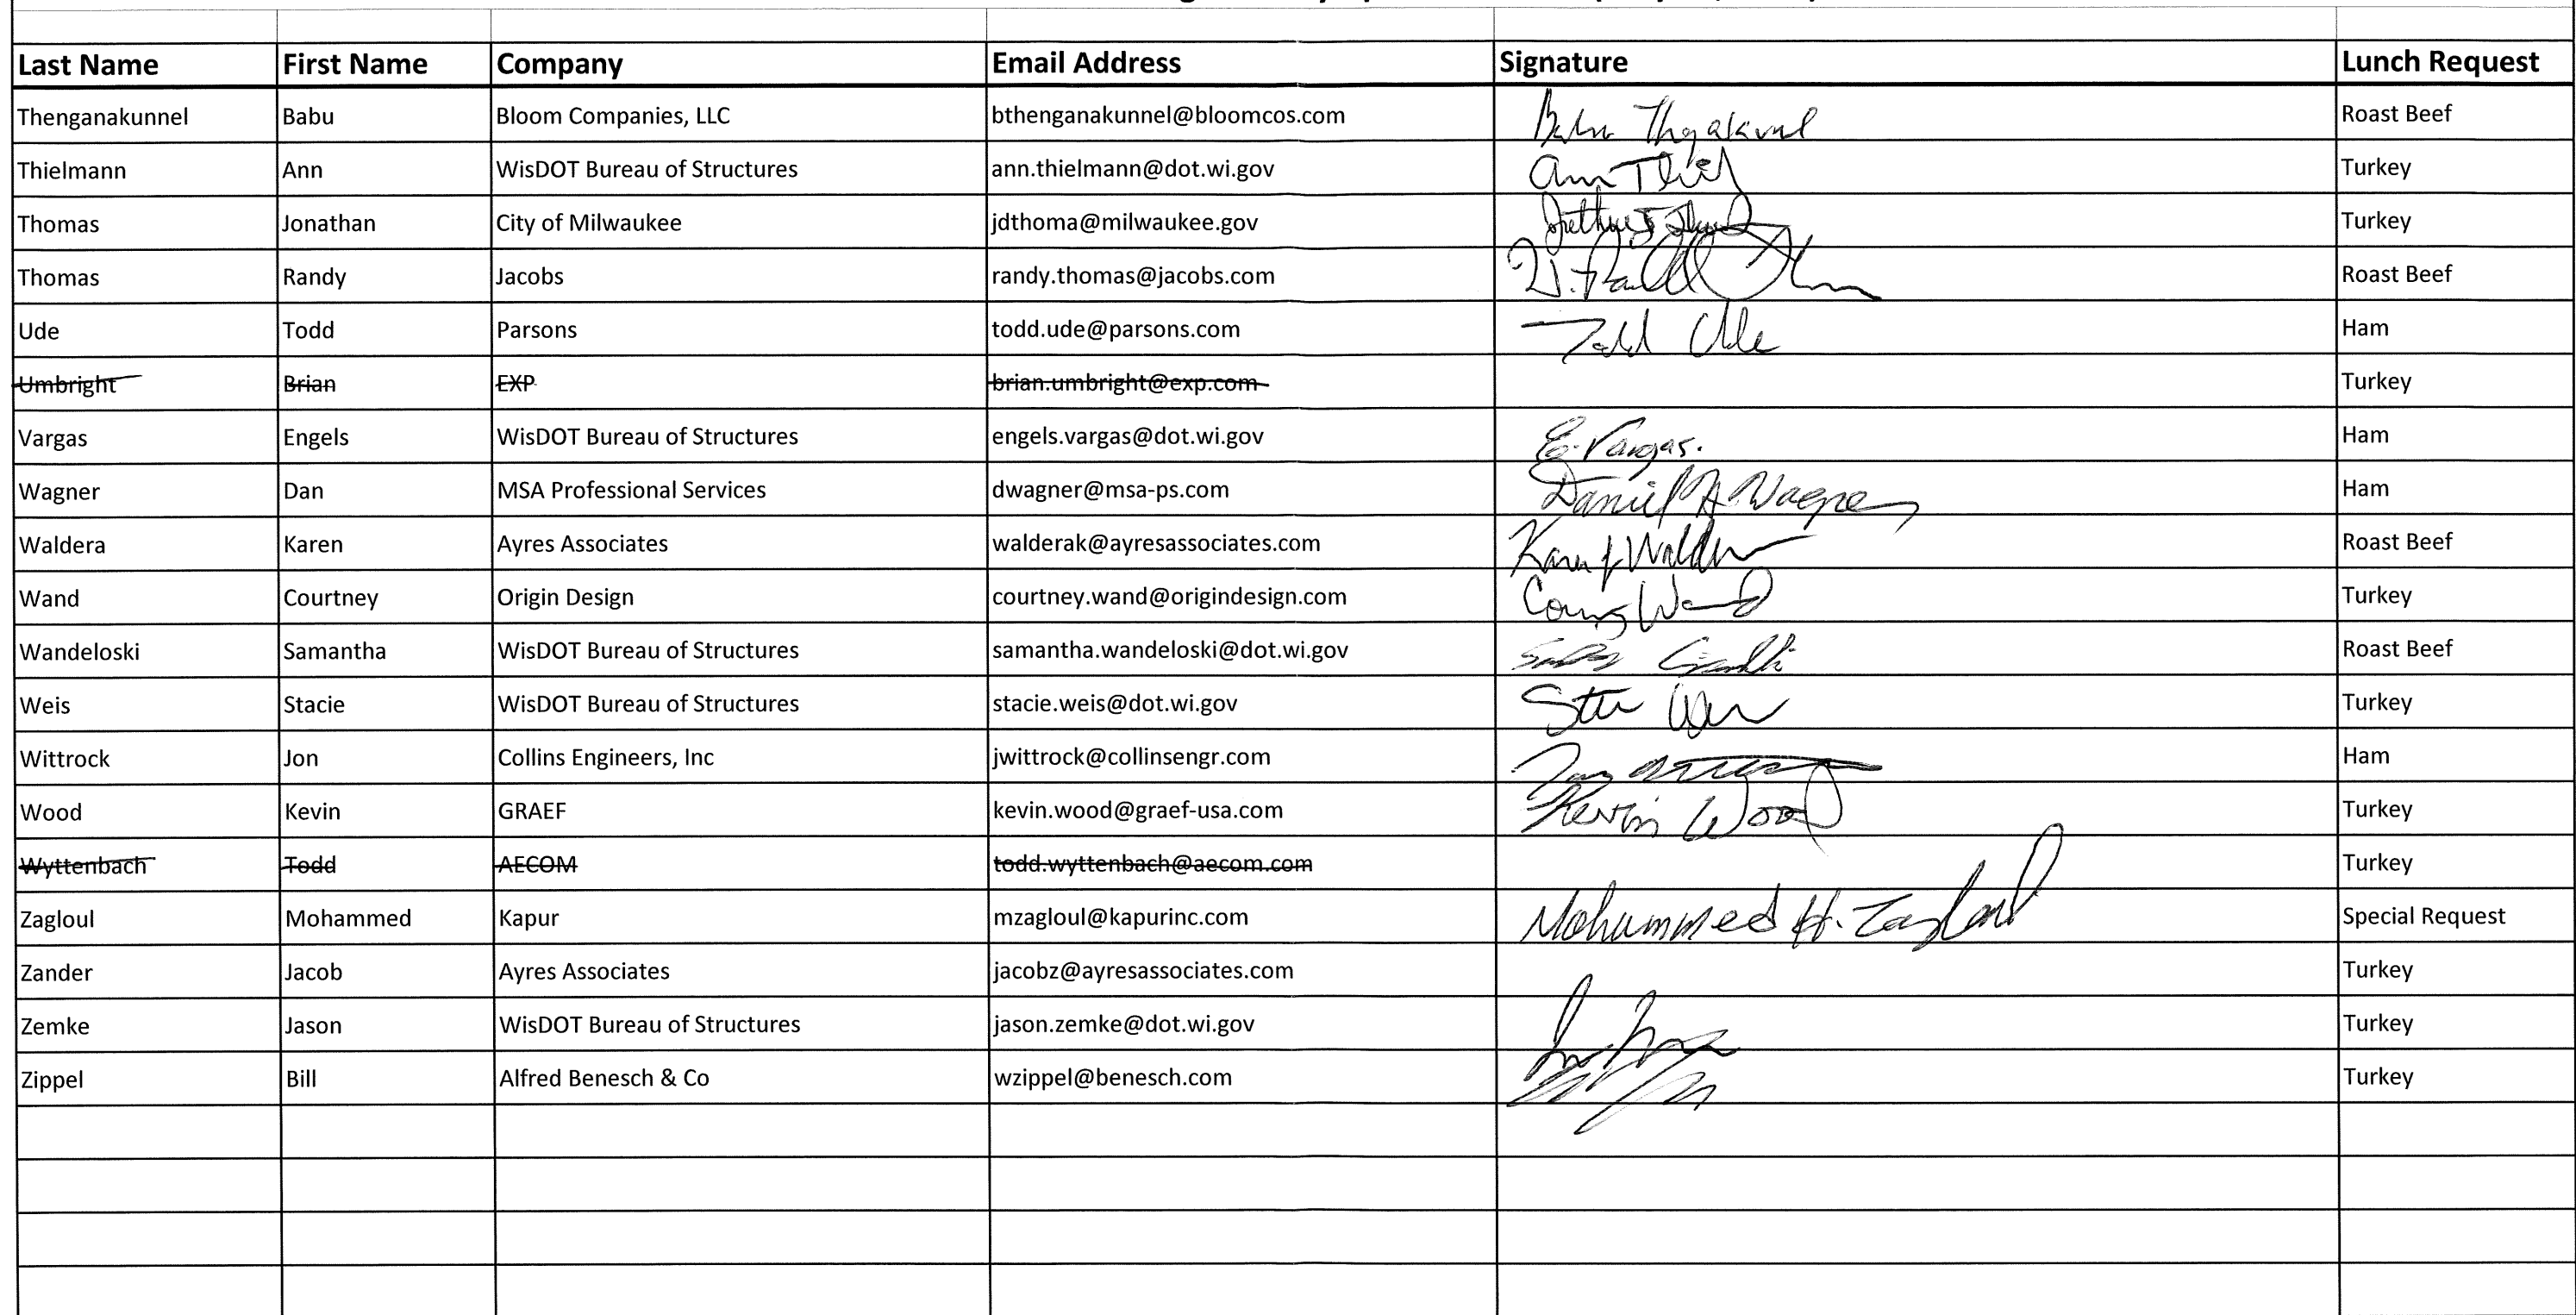 Last Name First Name Company Email Address Signature Lunch Request
Thenganakunnel Babu Bloom Companies, LLC bthenganakunnel@bloomcos.com Roast Beef
Thielmann Ann WisDOT Bureau of Structures ann.thielmann@dot.wi.gov Ann Turkey
Thomas Jonathan City of Milwaukee jdthoma@milwaukee.gov Turkey
Thomas Randy Jacobs randy.thomas@jacobs.com Roast Beef
Ude Todd Parsons todd.ude@parsons.com Todd Ude Ham
Umbright Brian EXP brian.umbright@exp.com Turkey
Vargas Engels WisDOT Bureau of Structures engels.vargas@dot.wi.gov E. Vargas. Ham
Wagner Dan MSA Professional Services dwagner@msa-ps.com Daniel A. Wagner Ham
Waldera Karen Ayres Associates walderak@ayresassociates.com Roast Beef
Wand Courtney Origin Design courtney.wand@origindesign.com Turkey
Wandeloski Samantha WisDOT Bureau of Structures samantha.wandeloski@dot.wi.gov Roast Beef
Weis Stacie WisDOT Bureau of Structures stacie.weis@dot.wi.gov Turkey
Wittrock Jon Collins Engineers, Inc jwittrock@collinsengr.com Ham
Wood Kevin GRAEF kevin.wood@graef-usa.com Kevin Wood Turkey
Wyttenbach Todd AECOM todd.wyttenbach@aecom.com Turkey
Zagloul Mohammed Kapur mzagloul@kapurinc.com Mohammed H. Zagloul Special Request
Zander Jacob Ayres Associates jacobz@ayresassociates.com Turkey
Zemke Jason WisDOT Bureau of Structures jason.zemke@dot.wi.gov Turkey
Zippel Bill Alfred Benesch & Co wzippel@benesch.com Turkey